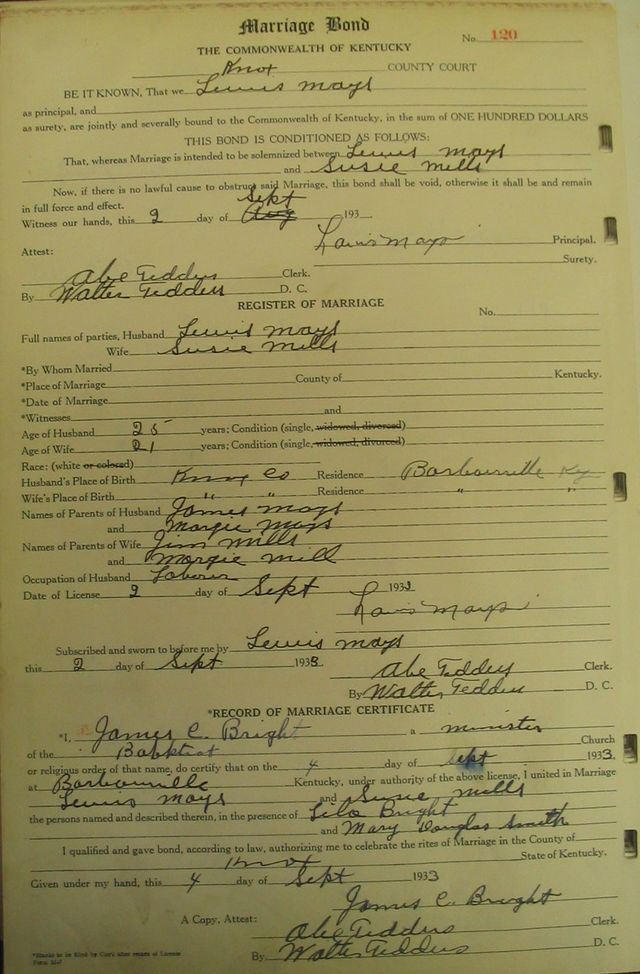 Marriage Bond
No. 120
THE COMMONWEALTH OF KENTUCKY
Knox COUNTY COURT
BE IT KNOWN, That we Lewis Mays
as principal, and
as surety, are jointly and severally bound to the Commonwealth of Kentucky, in the sum of ONE HUNDRED DOLLARS
THIS BOND IS CONDITIONED AS FOLLOWS:
That, whereas Marriage is intended to be solemnized between Lewis Mays
and Susie Mills
Now, if there is no lawful cause to obstruct said Marriage, this bond shall be void, otherwise it shall be and remain
in full force and effect. Sept
Witness our hands, this 2 day of Aug 193
Lewis Mays Principal.
Attest: Surety.
Abe Tedders Clerk.
By Walter Tedders D. C.
REGISTER OF MARRIAGE
No.
Full names of parties, Husband Lewis Mays
Wife Susie Mills
*By Whom Married
*Place of Marriage County of Kentucky.
*Date of Marriage
*Witnesses and
Age of Husband 25 years; Condition (single, widowed, divorced)
Age of Wife 21 years; Condition (single, widowed, divorced)
Race: (white or colored)
Husband's Place of Birth Knox Co Residence Barbourville Ky
Wife's Place of Birth " " Residence " "
Names of Parents of Husband James Mays
and Margie Mays
Names of Parents of Wife Jim Mills
and Margie Mill
Occupation of Husband Laborer
Date of License 2 day of Sept 1933
Lewis Mays
Subscribed and sworn to before me by Lewis Mays
this 2 day of Sept 1933
Abe Tedders Clerk.
By Walter Tedders D. C.
*RECORD OF MARRIAGE CERTIFICATE
*I, James C. Bright a minister
of the Baptist Church
or religious order of that name, do certify that on the 4 day of Sept 1933
at Barbourville Kentucky, under authority of the above license, I united in Marriage
Lewis Mays and Susie Mills
the persons named and described therein, in the presence of Lela Bright
and Mary Douglas Smith
I qualified and gave bond, according to law, authorizing me to celebrate the rites of Marriage in the County of
Knox State of Kentucky.
Given under my hand, this 4 day of Sept 1933
James C. Bright
A Copy, Attest: Abe Tedders Clerk.
By Walter Tedders D. C.
*Blanks to be filled by Clerk after return of License